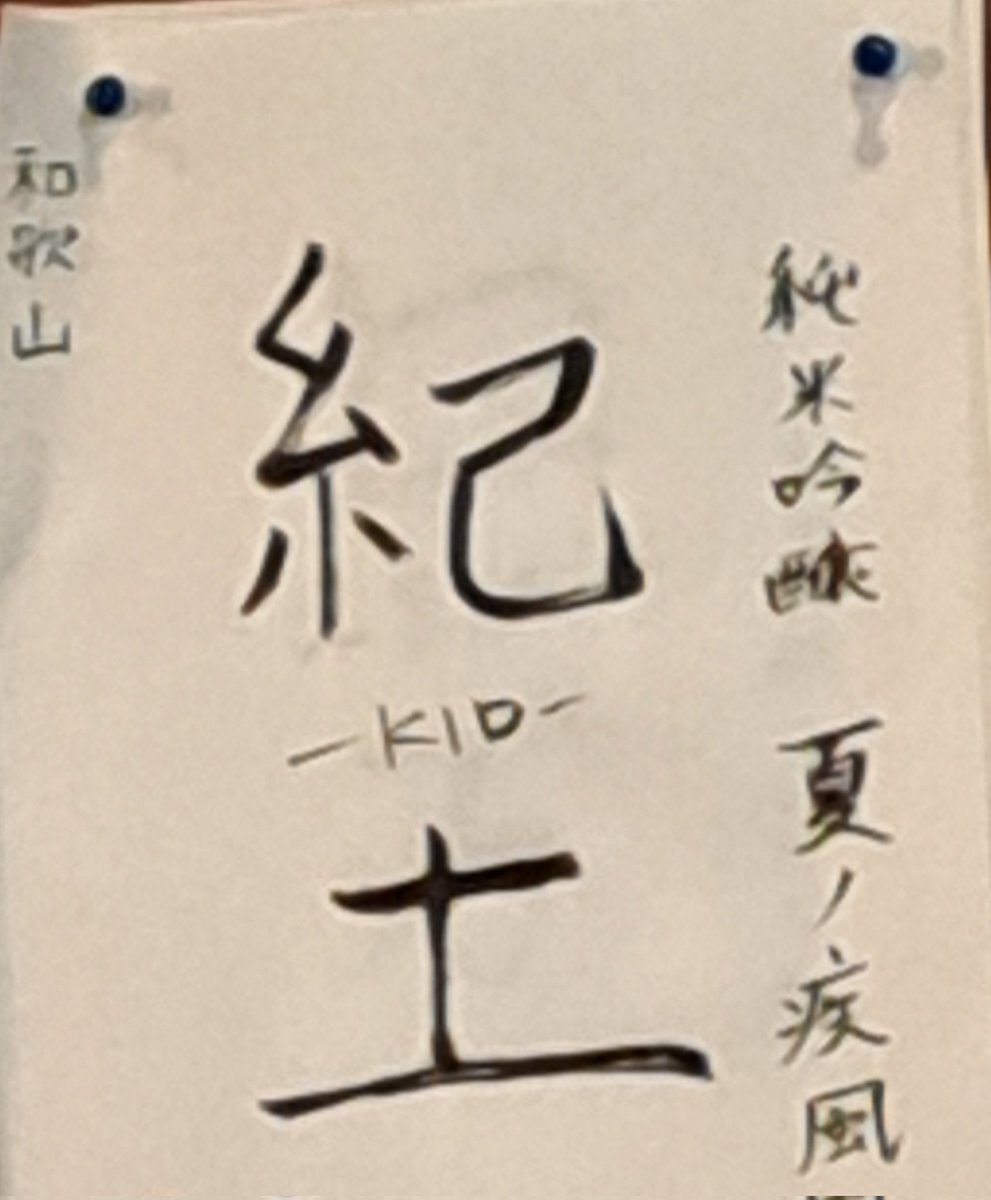 純米吟醸 夏ノ疾風
紀
-KID-
土
和歌山